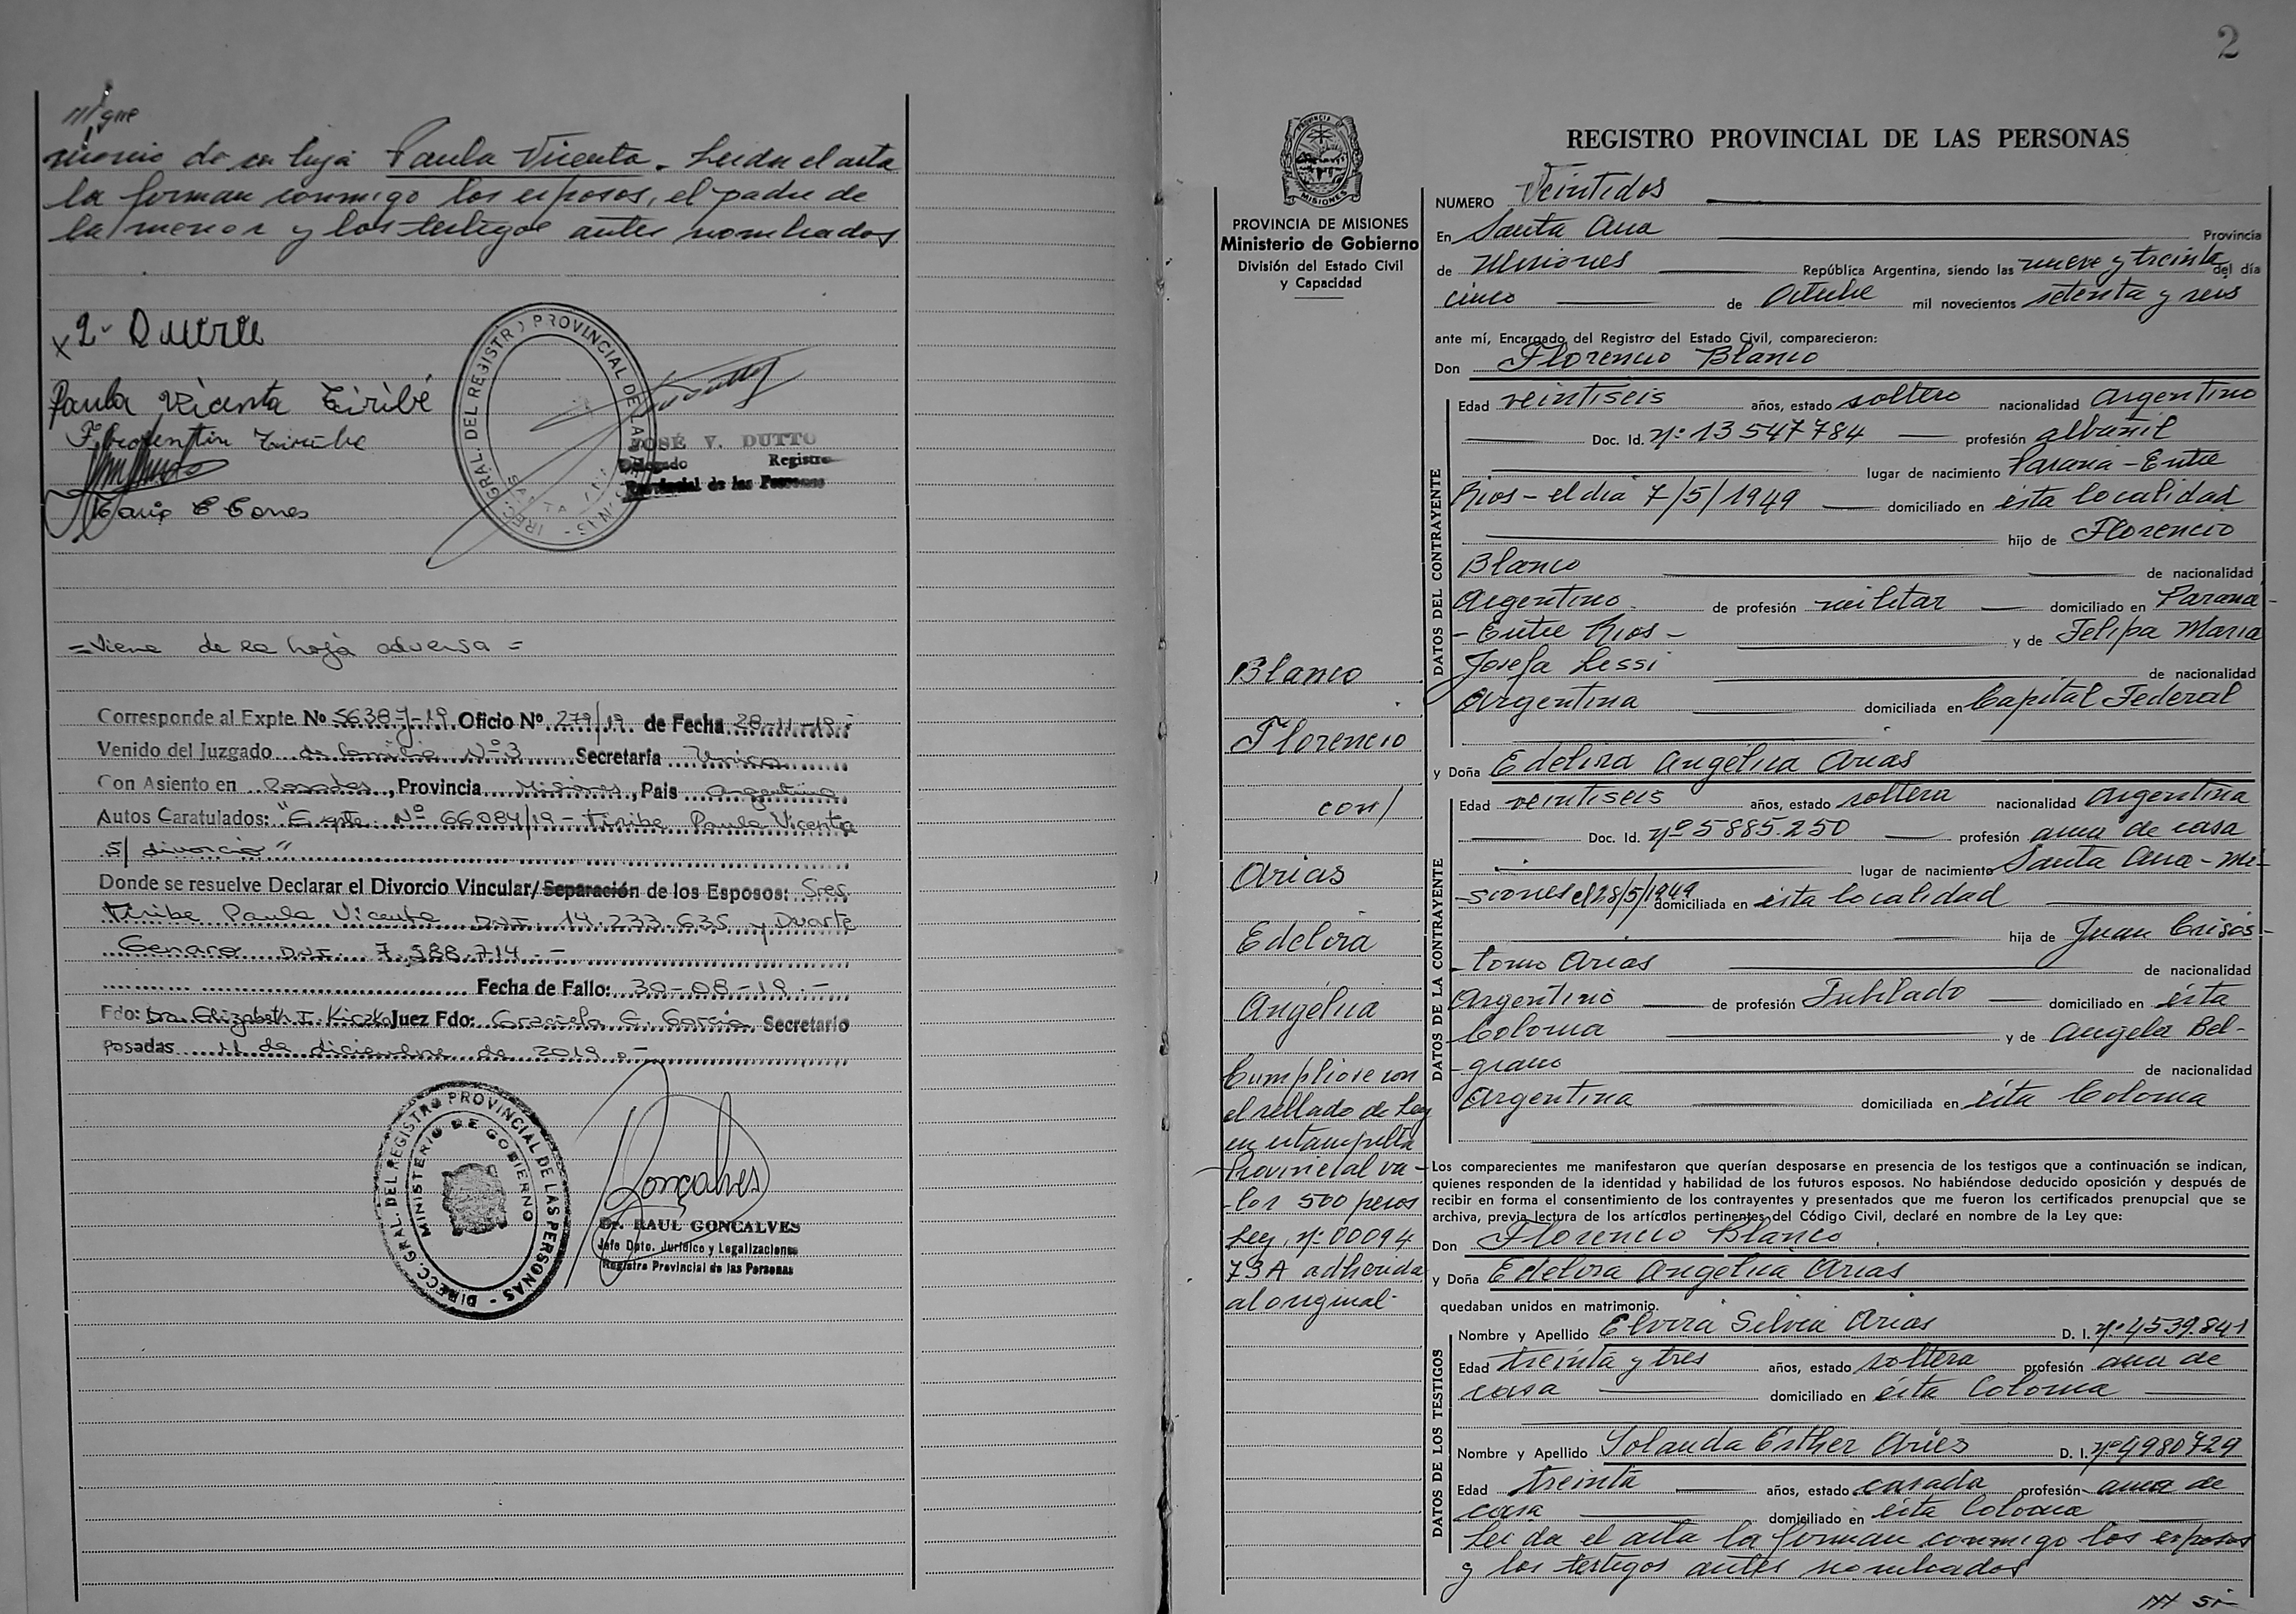 ///gue
monio de su hija Paula Vicenta. Leida el acta
la forman conmigo los esposos, el padre de
la menor y los testigos antes nombrados
Paula Vicenta Tiribé
JOSÉ V. DUTTO
Delegado Registro
Provincial de las Personas
=Viene de la hoja adversa=
Corresponde al Expte. No 5638-J-19 Oficio Nº 279/19 de Fecha 28-11-19.-
Venido del Juzgado de Familia Nº3 Secretaría Unica
Con Asiento en Posadas, Provincia Misiones, Pais Argentina
Autos Caratulados: "Expte. Nº 66084/19 - Tiribe Paula Vicenta
S/ divorcio"
Donde se resuelve Declarar el Divorcio Vincular/Separación de los Esposos: Sres
Tiribe Paula Vicenta DNI. 14.233.635 y Duarte
Genaro DNI. 7.588.714.-
Fecha de Fallo: 30-08-19.-
Fdo: Dra. Elizabeth I. Kiczko Juez Fdo: Graciela G. Garcia Secretario
Posadas 11 de diciembre de 2019.-
DIRECC. GRAL. DEL REGISTRO PROVINCIAL DE LAS PERSONAS
MINISTERIO DE GOBIERNO
Dr. RAUL GONCALVES
Jefe Dpto. Jurídico y Legalizaciones
Registro Provincial de las Personas
2
PROVINCIA DE MISIONES
Ministerio de Gobierno
División del Estado Civil
y Capacidad
Blanco
Florencio
con/
Arias
Edelira
Angélica
Cumpliose con
el sellado de Ley
en estampilla
Provincial va-
lor 500 pesos
Ley, nº 00094
73A adherida
al original-
REGISTRO PROVINCIAL DE LAS PERSONAS
NUMERO Veintidos
En Santa Ana Provincia
de Misiones República Argentina, siendo las nueve y treinta del día
cinco de Octubre mil novecientos setenta y seis
ante mí, Encargado del Registro del Estado Civil, comparecieron:
Don Florencio Blanco
DATOS DEL CONTRAYENTE
Edad veintiseis años, estado soltero nacionalidad Argentino
Doc. Id. nº 13547784 profesión albañil
lugar de nacimiento Parana - Entre
Rios - el dia 7/5/1949 domiciliado en ésta localidad
hijo de Florencio
Blanco de nacionalidad
Argentino de profesión militar domiciliado en Parana-
- Entre Rios - y de Felipa Maria
Josefa Lessi de nacionalidad
Argentina domiciliada en Capital Federal
y Doña Edelira Angélica Arias
DATOS DE LA CONTRAYENTE
Edad veintiseis años, estado soltera nacionalidad Argentina
Doc. Id. nº 5885.250 profesión ama de casa
lugar de nacimiento Santa Ana - Mi-
siones el 28/5/1949 domiciliada en ésta localidad
hija de Juan Crisós-
tomo Arias de nacionalidad
Argentino de profesión Jubilado domiciliado en ésta
Colonia y de Angela Bel-
grano de nacionalidad
Argentina domiciliada en ésta Colonia
Los comparecientes me manifestaron que querían desposarse en presencia de los testigos que a continuación se indican,
quienes responden de la identidad y habilidad de los futuros esposos. No habiéndose deducido oposición y después de
recibir en forma el consentimiento de los contrayentes y presentados que me fueron los certificados prenupcial que se
archiva, previa lectura de los artículos pertinentes del Código Civil, declaré en nombre de la Ley que:
Don Florencio Blanco
y Doña Edelira Angélica Arias
quedaban unidos en matrimonio.
DATOS DE LOS TESTIGOS
Nombre y Apellido Elvira Silvia Arias D. I. nº 4539.841
Edad treinta y tres años, estado soltera profesión ama de
casa domiciliado en ésta Colonia
Nombre y Apellido Yolanda Esther Aries D. I. nº 4980729
Edad treinta años, estado casada profesión ama de
casa domiciliado en ésta Colonia
Lei da el acta la forman conmigo los esposos
y los testigos antes nombrados